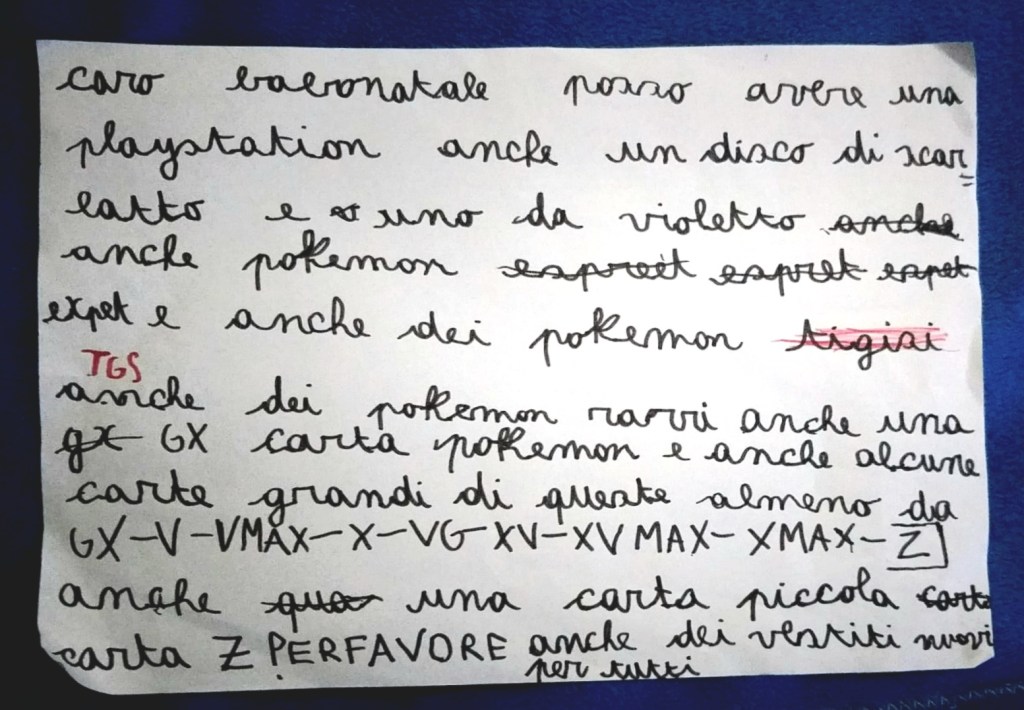 caro babonatale posso avere una
playstation anche un disco di scar
latto e uno da violetto anche
anche pokemon espreit espret espet
expet e anche dei pokemon tigisi
TGS
anche dei pokemon rarri anche una
gx GX carta pokemon e anche alcune
carte grandi di queste almeno da
GX-V-VMAX-X-VG-XV-XVMAX-XMAX-Z
anche qua una carta piccola carta
carta Z PERFAVORE anche dei vestiti nuovi
per tutti